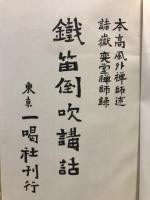 本高風外禅師述
諸嶽奕堂禅師録
鐵笛倒吹講話
東京 一喝社刊行